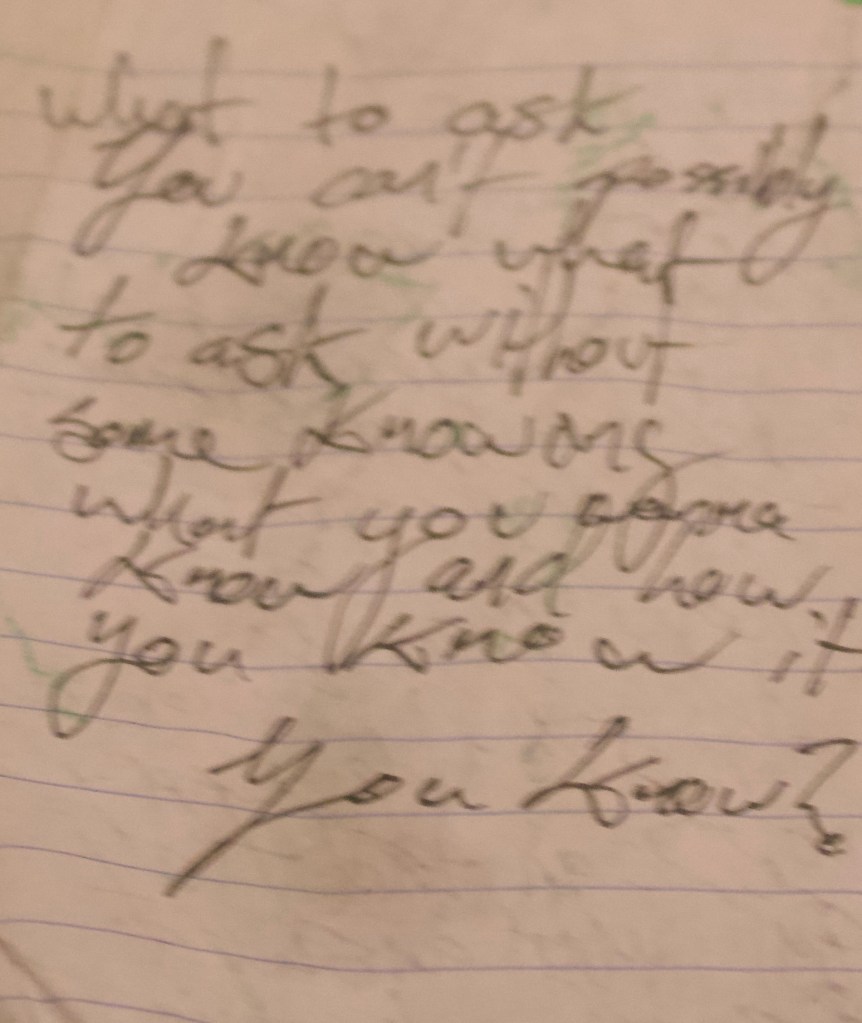 what to ask
You can't possibly
know what
to ask without
some knowing
what you wanna
know and how
you know it
You know?